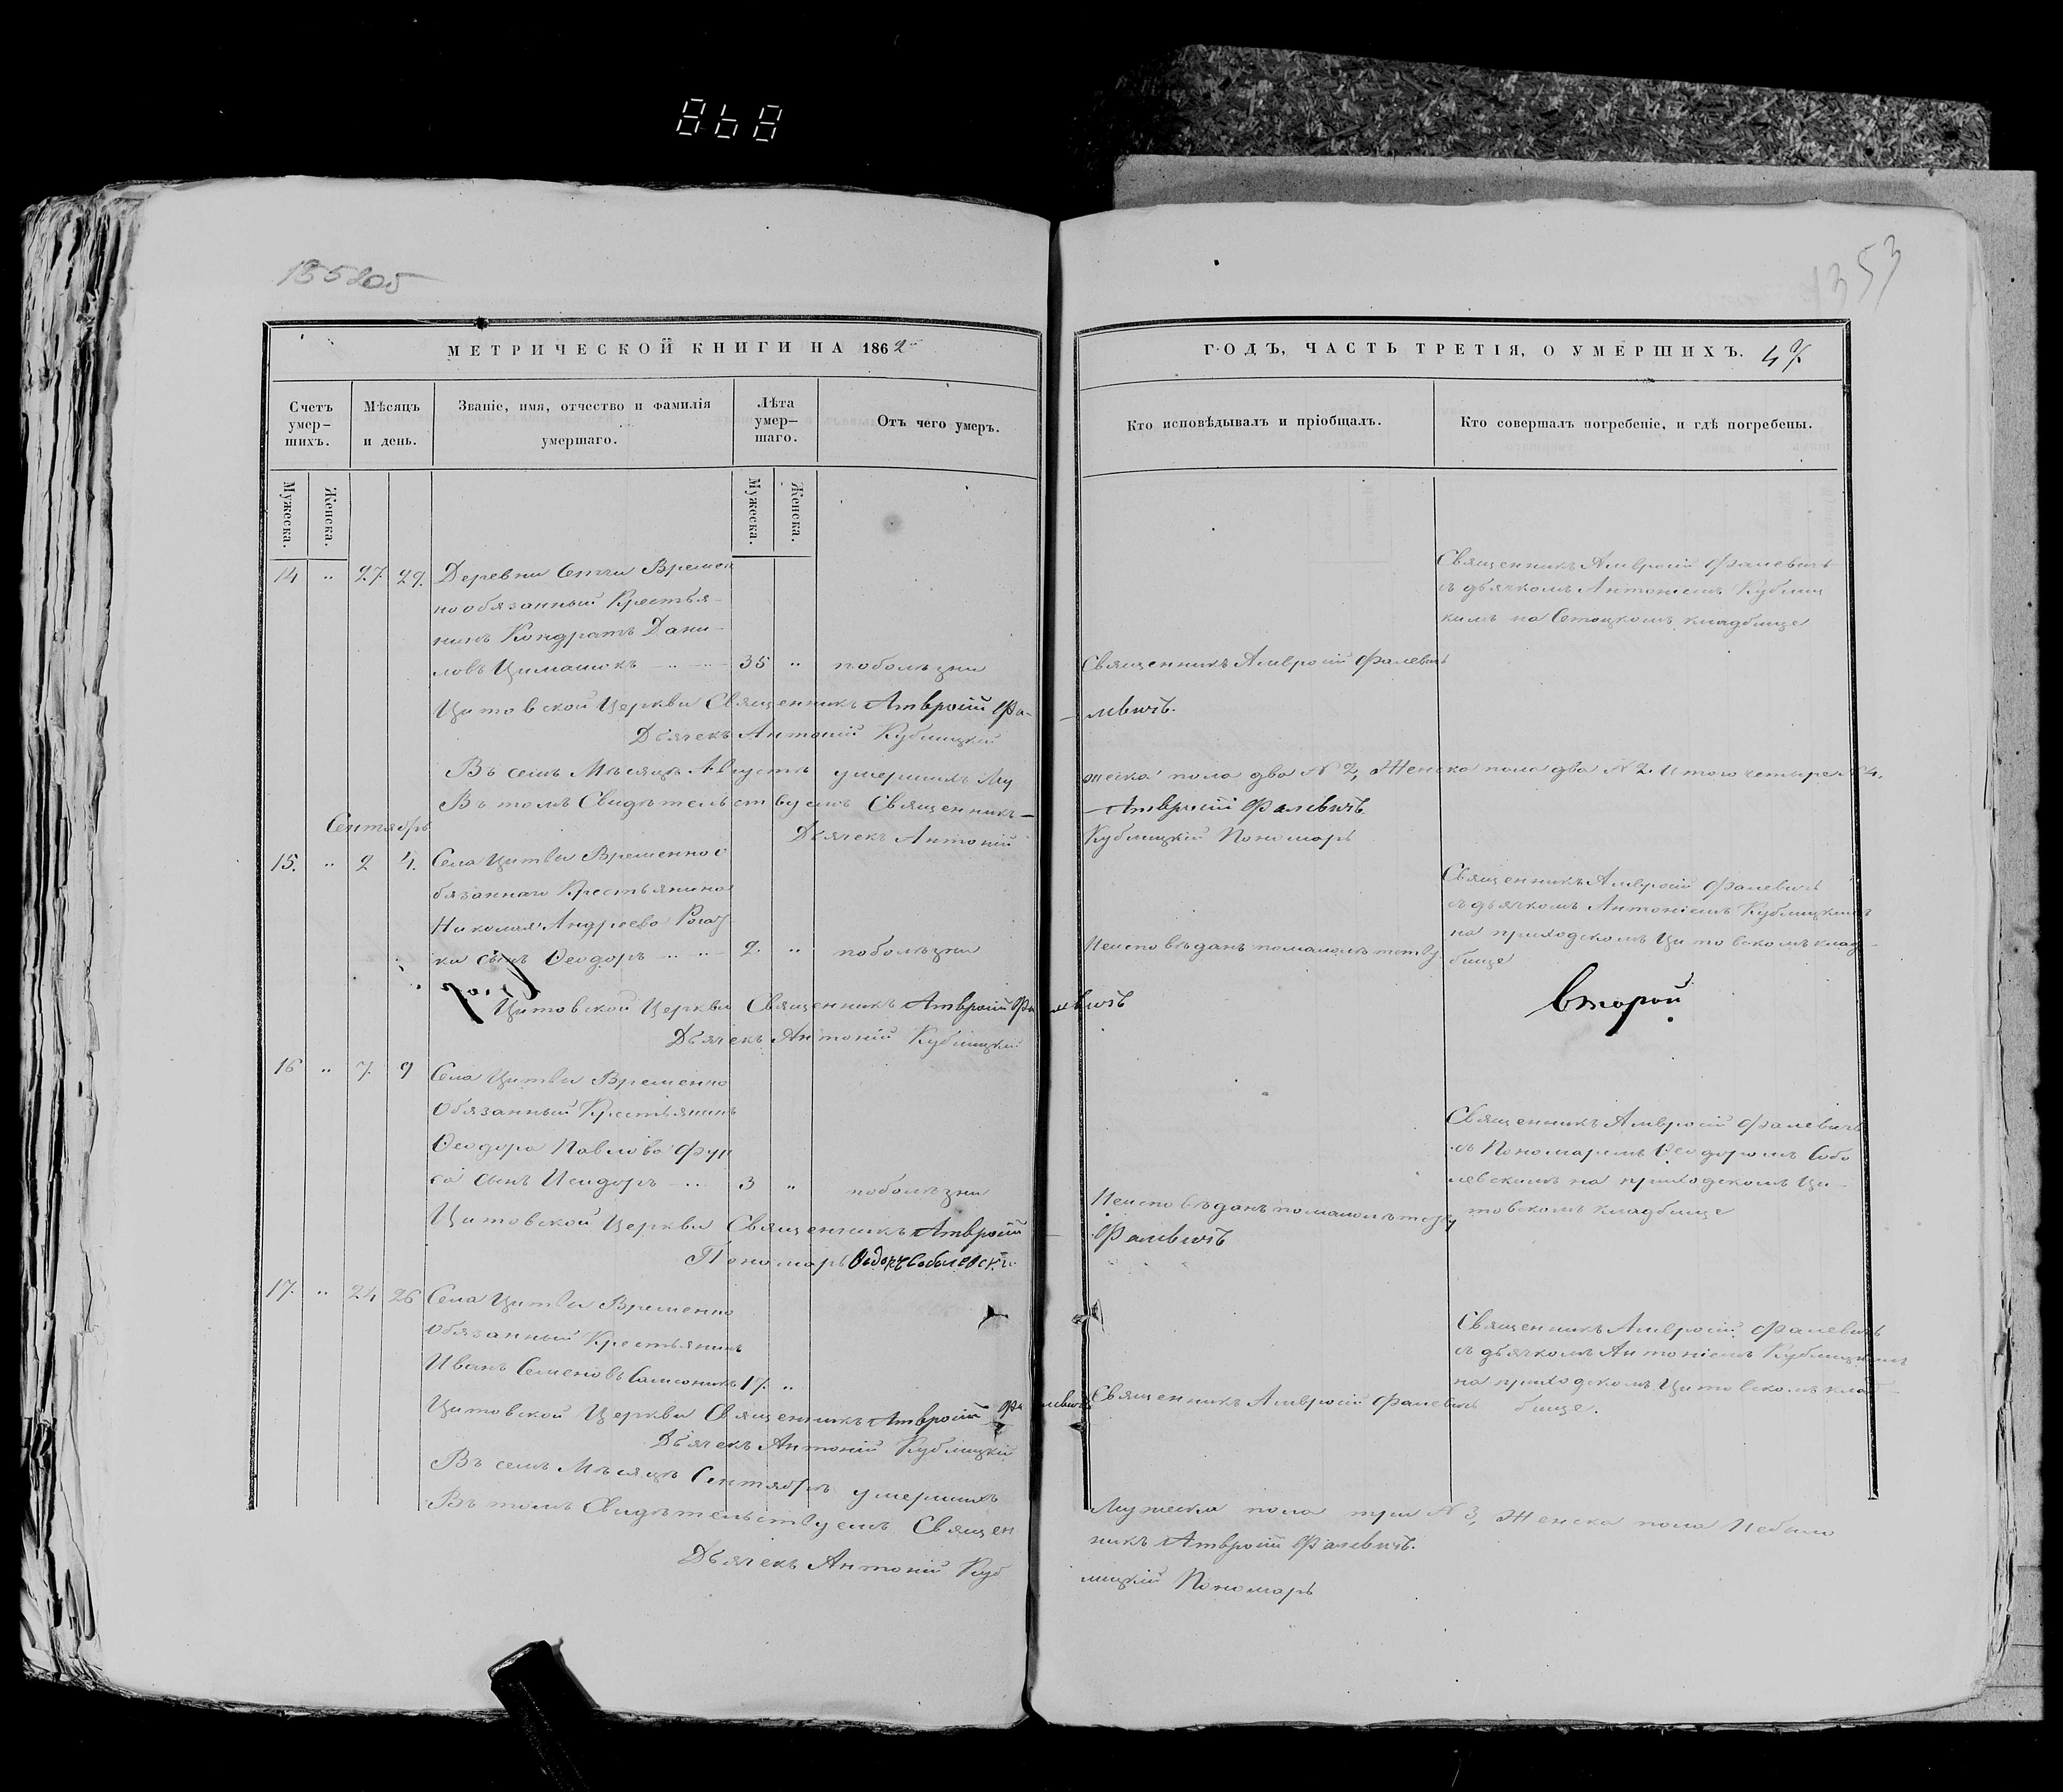 868
155205
53
МЕТРИЧЕСКОЙ КНИГИ НА 1862
ГОДЪ, ЧАСТЬ ТРЕТІЯ, О УМЕРШИХЪ. 47.
Счетъ умер-шихъ.
Мѣсяцъ и день.
Званіе, имя, отчество и фамилія умершаго.
Лѣта умер-шаго.
Отъ чего умеръ.
Кто исповѣдывалъ и пріобщалъ.
Кто совершалъ погребеніе, и гдѣ погребены.
Мужеска. Женска.
Мужеска. Женска.
14 " 27 29. Деревни Сетчи Времен
нообязанный Крестья-
нинъ Кондратъ Дани-
ловъ 35 " по болѣзни
Священникъ Амвросій Фалевичъ
Священникъ Амвросій Фалевичъ
съ дьячкомъ Антоніемъ Кублиц
кимъ на Сетоцкомъ кладбище
Цитовской Церкви Священникъ Амвросій Фа-
левичъ.
Дьячекъ Антоній Кублицкій
Въ семъ Мѣсяцѣ Августѣ умершихъ Му
жеска пола два N 2, Женска пола два N 2. Итого четыре N 4.
Въ томъ Свидѣтельствуемъ Священникъ
Амвросій Фалевичъ
Дьячекъ Антоній
Кублицкій Пономарь
Сентябрь
15. " 2 4. Села Цитвы Временноо
бязаннаго Крестьянина
Николая Андреева
ки сынъ Ѳеодоръ 2 " по болѣзни
Неисповѣданъ по малолѣтству
Священникъ Амвросій Фалевичъ
съ дьячкомъ Антоніемъ Кублицкимъ
на приходскомъ Цитовскомъ клад-
бище
второй
Цитовской Церкви Священникъ Амвросій Фалевичъ
Дьячекъ Антоній Кублицкій
16 " 7 9 Села Цитвы Временно
Обязанный Крестьянинъ
Ѳеодора Павлова
са сынъ Исидоръ 3 " по болѣзни
Неисповѣданъ по малолѣтству
Священникъ Амвросій Фалевичъ
съ Пономаремъ Ѳеодоромъ Собо
левскимъ на приходскомъ Ци-
товскомъ кладбище
Цитовской Церкви Священникъ Амвросій
Фалевичъ
Пономарь
17. " 24 26 Села Цитвы Временно
Обязанный Крестьянинъ
Иванъ Семеновъ Самсоникъ 17. "
Священникъ Амвросій Фалевичъ
Священникъ Амвросій Фалевичъ
съ дьячкомъ Антоніемъ Кублицкимъ
на приходскомъ Цитовскомъ клад-
бище.
Цитовской Церкви Священникъ Амвросій Фалевичъ
Дьячекъ Антоній Кублицкій
Въ семъ Мѣсяцѣ Сентябрѣ умершихъ
Мужеска пола три N 3, Женска пола Небыло
Въ томъ Свидѣтельствуемъ Священ
никъ Амвросій Фалевичъ.
Дьячекъ Антоній Куб
лицкій Пономарь